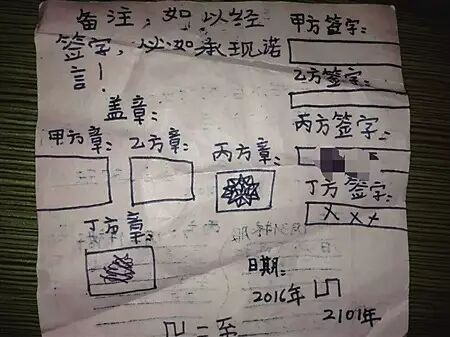 备注，如以经
签字，必如承现诺
言！
盖章：
甲方章：
乙方章：
丙方章：
丁方章：
甲方签字：
乙方签字：
丙方签字：
丁方签字：
XXX
日期：
2016年
2101年
二至